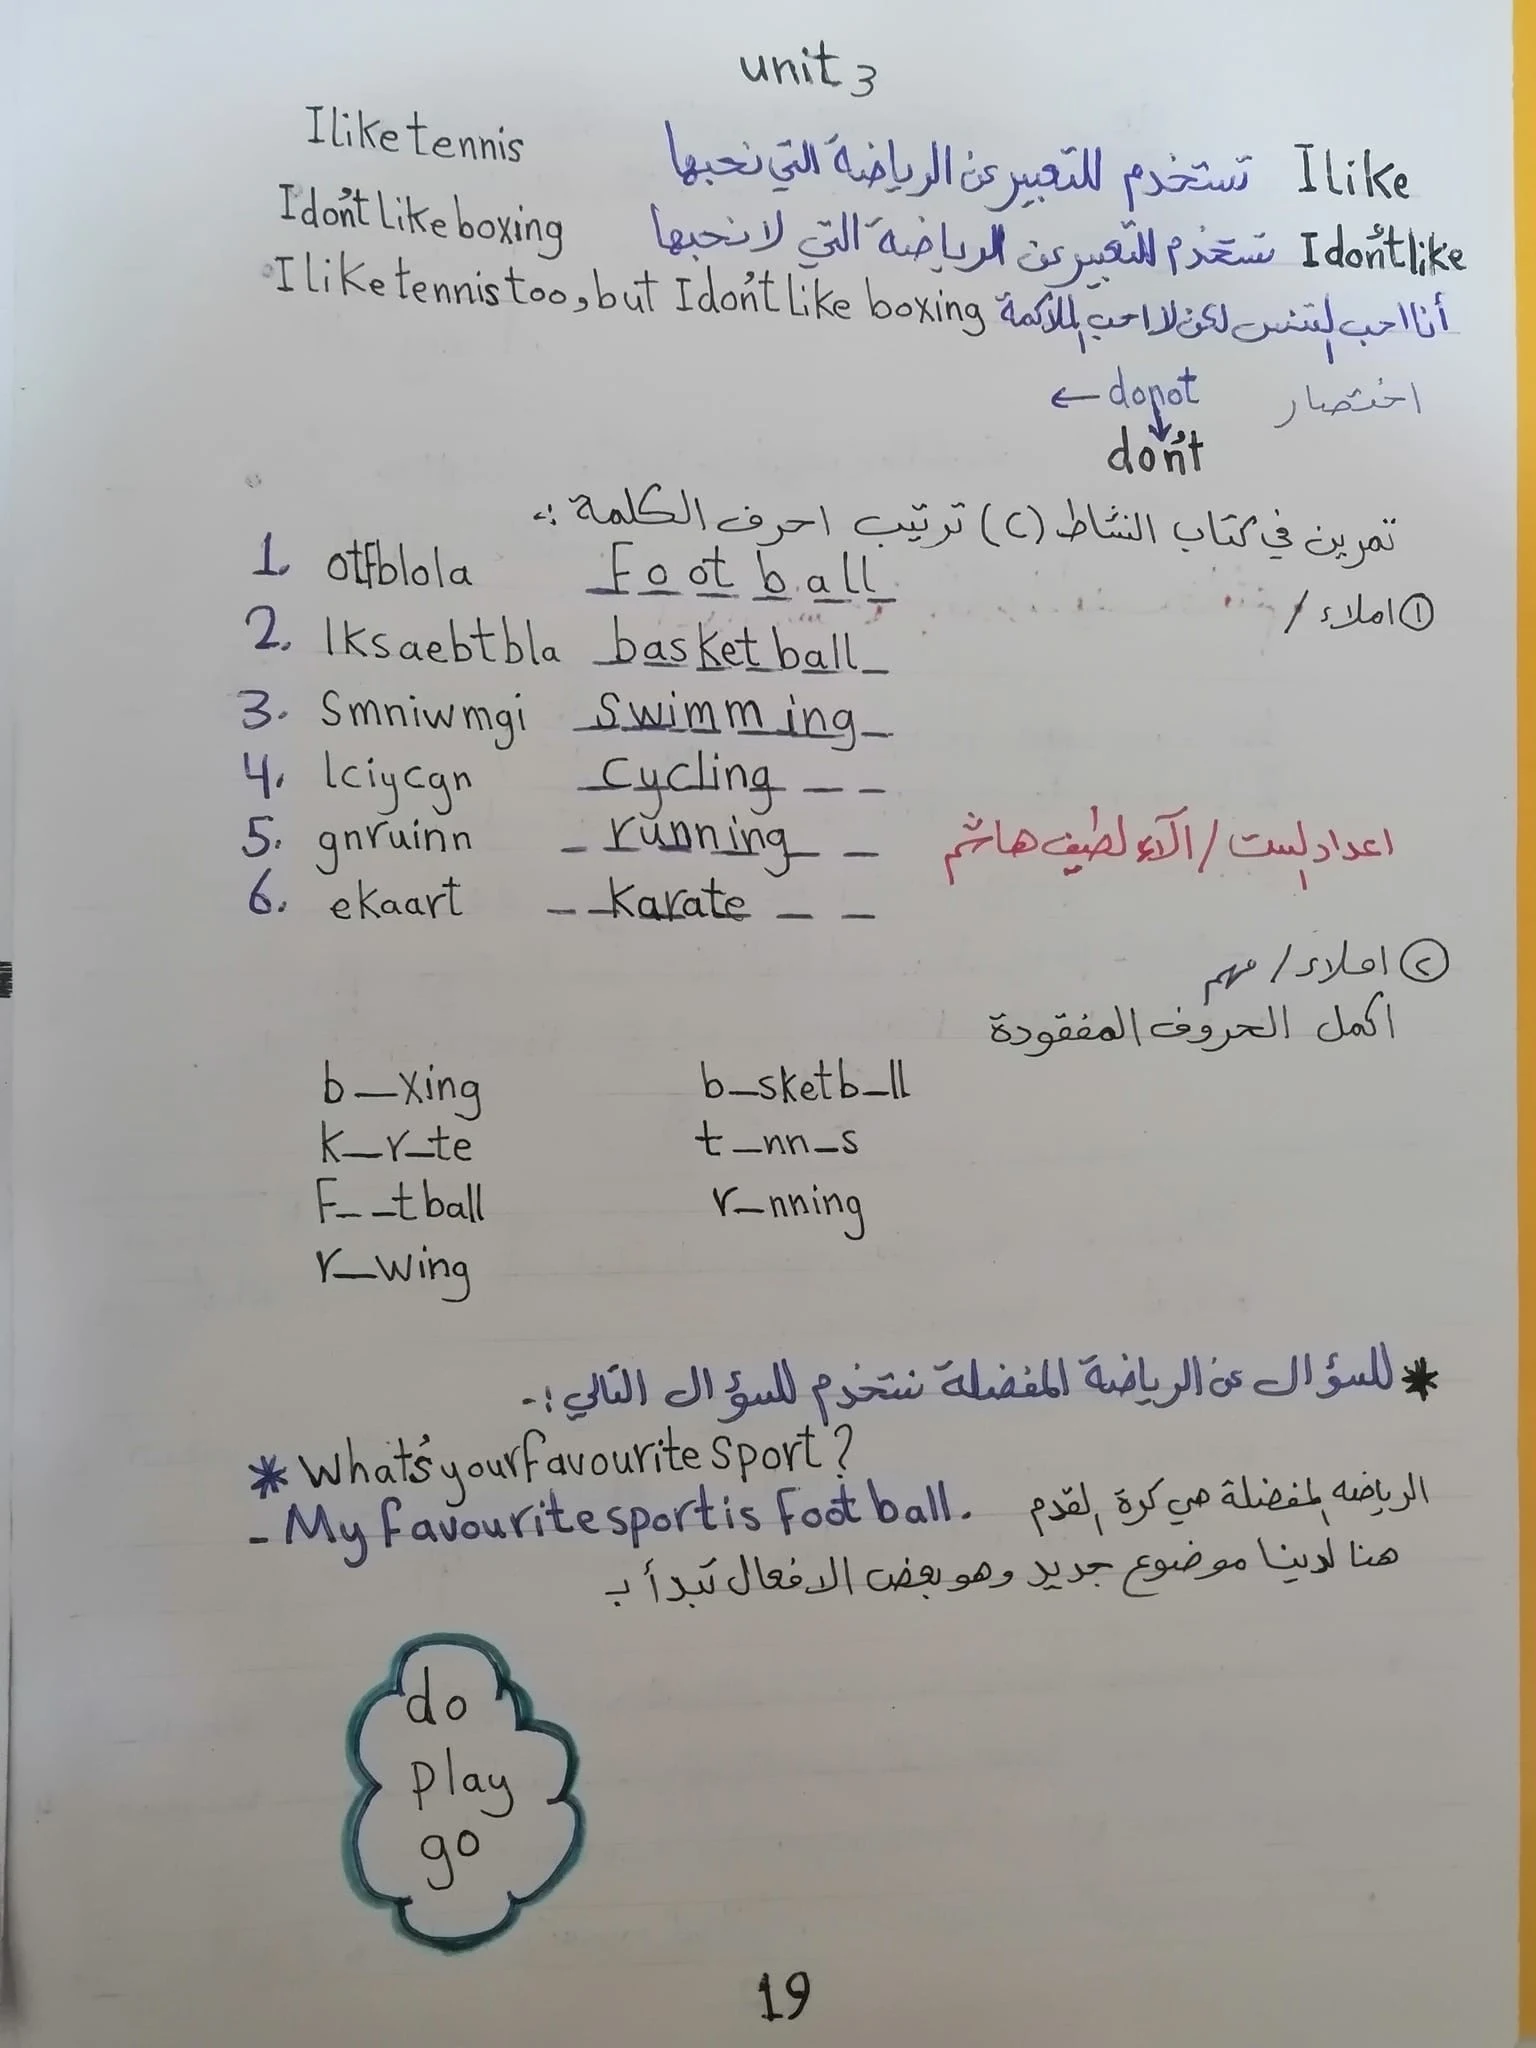 unit 3
I like tennis
I like تستخدم للتعبير عن الرياضة التي نحبها
I don't like boxing
I don't like تستخدم للتعبير عن الرياضة التي لا نحبها
I like tennis too, but I don't like boxing أنا احب التنس لكن لا احب الملاكمة
اختصار do not ←
↓
don't
تمرين في كتاب النشاط (C) ترتيب احرف الكلمة :-
① املاء /
1. otfblola football
2. lksaebtbla basketball
3. Smniwmgi swimming
4. lciycgn cycling
5. gnruinn running
اعداد الست / آلاء لطيف هاشم
6. ekaart karate
② املاء / مهم
اكمل الحروف المفقودة
b_xing b_sketb_ll
k_r_te t_nn_s
F__tball r_nning
r_wing
* للسؤال عن الرياضة المفضلة نستخدم للسؤال التالي :-
* What's your favourite sport?
- My favourite sport is football. الرياضه المفضلة هي كرة القدم
هنا لدينا موضوع جديد وهو بعض الافعال تبدأ بـ
do
play
go
19